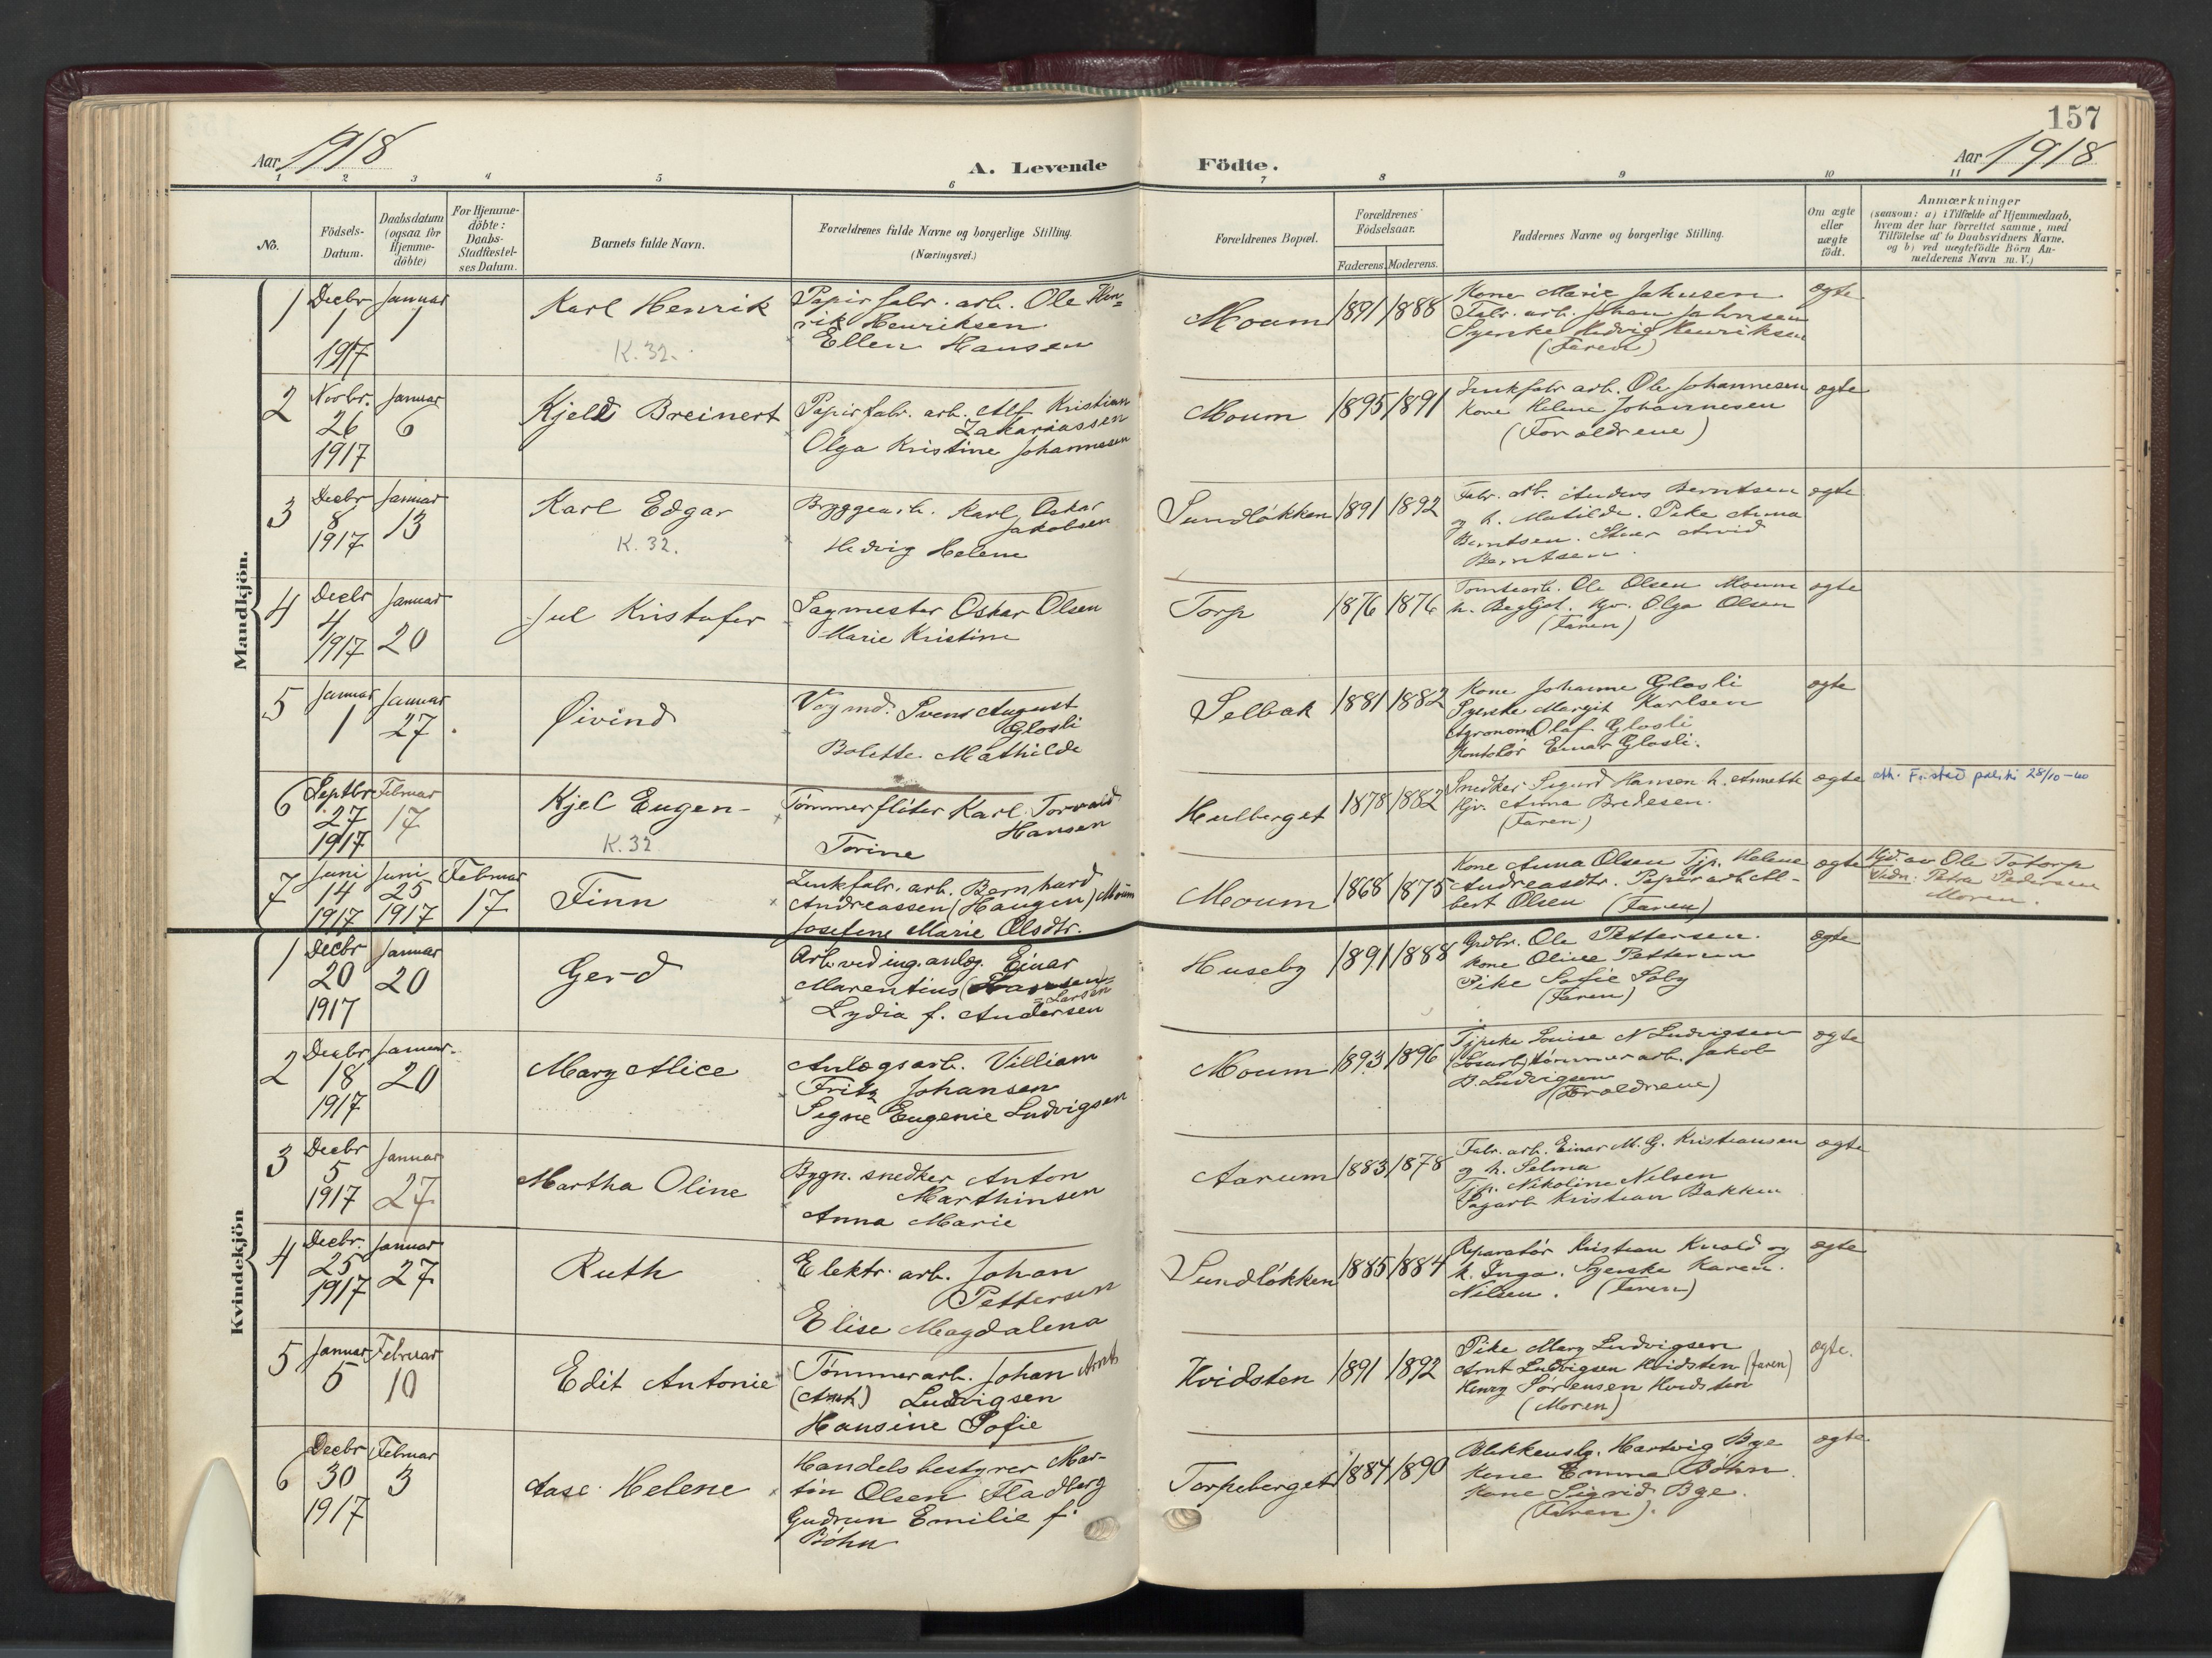 157
Aar 1918
A. Levende Födte.
Aar 1918
1 2 3 4 5 6 7 8 9 10 11
No.
Födsels-
Datum.
Daabsdatum
(ogsaa for
Hjemme-
döbte)
For Hjemme-
döbte:
Daabs-
Stadfæstel-
ses Datum.
Barnets fulde Navn.
Forældrenes fulde Navne og borgerlige Stilling.
(Næringsvei.)
Forældrenes Bopæl.
Forældrenes
Födselsaar.
Faderens. Moderens.
Faddernes Navne og borgerlige Stilling.
Om ægte
eller
uægte
födt.
Anmærkninger
(saasom: a) i Tilfælde af Hjemmedaab,
hvem der har forrettet samme, med
Tilföielse af to Daabsvidners Navne.
og b) ved uægtefödte Börn An-
melderens Navn m.V.)
Mandkjön.
1
Decbr
1
1917
Januar
1
Karl Henrik
K. 32.
Papirfabr. arb. Ole Hen=
rik Henriksen
Ellen Hansen
Moum
1891 1888
Kone Marie Johnsen
Fabr. arb. Johan Johnsen
Syerske Hedvig Henriksen
(Faren)
ægte
2
Novbr.
26
1917
Januar
6
Kjeld Breinert
Papirfabr. arb. Alf Kristian
Zakariassen
Olga Kristine Johannesen
Moum
1895 1891
Zinkfabr arb. Ole Johannesen
Kone Helene Johannesen
(Forældrene)
ægte
3
Decbr
8
1917
Januar
13
Karl Edgar
K. 32.
Bryggearb. Karl Oskar
Jakobsen
Hedvig Helene
Sundløkken
1891 1892
Fabr. arb. Anders Berntsen
og h. Matilde. Pike Anna
Berntsen. Arvid
Berntsen.
ægte
4
Decbr
4
1917
Januar
20
Jul Kristofer
Sagmester Oskar Olsen
Marie Kristine
Torp
1876 1876
Tomtearb. Ole Olsen Moum
h. Bergljot. Kjv. Olga Olsen
(Faren)
ægte
5
Januar
1
Januar
27
Øivind
Vogmd. Svend August
Glosli
Bolette Mathilde
Selbak
1881 1882
Kone Johanne Glosli
Syerske Margit Karlsen
Agronom Olaf Glosli
Kontorist Einar Glosli.
ægte
6
Septbr
27
1917
Februar
17
Kjel Eugen
K. 32
Tømmerfløter Karl Torvald
Hansen
Torine
Hulberget
1878 1882
Snedker Sigurd Hansen h. Annette
Kjv. Anna Bredesen.
(Faren)
ægte
att. Fr.stad politi 28/10-40
7
Juni
14
1917
Juni
25
1917
Februar
17
Finn
Zinkfabr. arb. Bernhard
Andreassen (Haugen) Moum
Josefine Marie Olsdtr.
Moum
1868 1875
Kone Anna Olsen Tjp. Helene
Andreasdtr. Papirarb. Al-
bert Olsen (Faren)
ægte
Hjd. av Ole Totorp
Vidn: Petra Pedersen
Moren.
Kvindekjön
1
Decbr
20
1917
Januar
20
Gerd
Arb. ved ing. anlæg. Einar
Marentius
=Larsen
Lydia f. Andersen
Huseby
1891 1888
Grdbr. Ole Pettersen.
Kone Oline Pettersen
Pike Sofie Soby
(Faren)
ægte
2
Decbr
18
1917
Januar
20
Mary Alice
Anlægsarb. Villiam
Fritz Johansen
Signe Eugenie Ludvigsen
Moum
1893 1896
Tjpike Louise N Ludvigsen
(Løsarb) tømmerarb. Jakob
B. Ludvigsen
(Forældrene)
ægte
3
Decbr
5
1917
Januar
27
Martha Oline
Bygn. snedker Anton
Marthinsen
Anna Marie
Aarum
1883 1878
Fabr. arb. Einar M. G. Kristiansen
og h. Selma
Tjp. Nikoline Nilsen
Sagarb Kristian Bakken
ægte
4
Decbr.
25
1917
Januar
27
Ruth
Elektr. arb. Johan
Pettersen
Elise Magdalena
Sundløkken
1885 1884
Reparatør Kristian Kvald og
h. Inga. Syerske Karen
Nilsen. (Faren)
ægte
5
Januar
5
Februar
10
Edit Antonie
Tømmerarb. Johan Arnt
(Arnt) Ludvigsen
Hansine Sofie
Hvidsten
1891 1892
Pike Mary Ludvigsen
Arnt Ludvigsen Hvidsten (faren)
Henry Sørensen Hvidsten
(Moren)
ægte.
6
Decbr
30
1917
Februar
3
Aase Helene
Handelsbestyrer Mar-
tin Olsen Fladberg
Gudrun Emilie f.
Bøhn
Torpeberget
1884 1890
Blikkenslg. Hartvig Bye
Kone Emma Bøhn
Kone Sigrid Bye.
(Faren).
ægte.